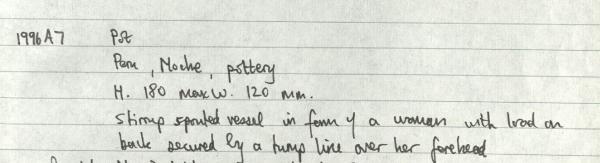 1996 A7 Pot
Peru, Moche, pottery
H. 180 max W. 120 mm.
Stirrup spouted vessel in form of a woman with load on
back secured by a tump line over her forehead